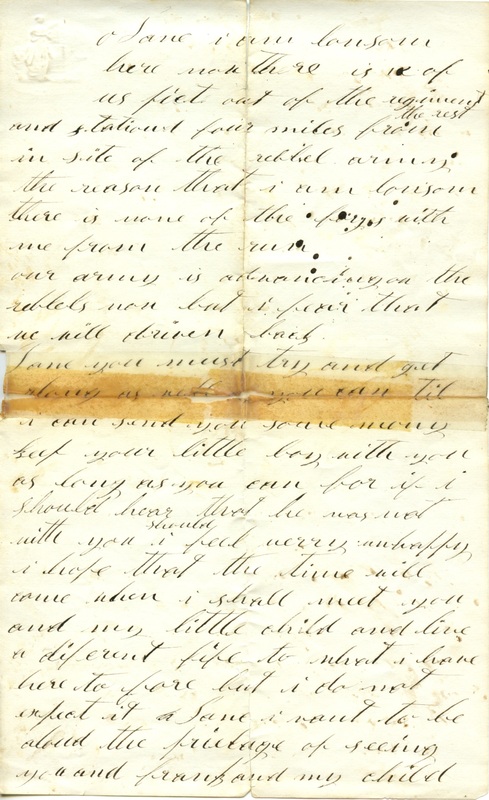 o Jane i am lonsom
here now there is of
us fiet out of the regiment
the rest
and stationd four miles from
in site of the rebbel army
the reason that i am lonsom
there is none of the boys with
me from the run
our army is advancing on the
rebbels now but i fear that
we will driven back
Jane you must try and get
along as well you can til
i can send you some mony
keep your little boy with you
as long as you can for if i
should hear that he was not
should
with you i feel verry unhappy
i hope that the time will
come when i shall meet you
and my little child and live
a diferent life to what i have
here to fore but i do not
expect it Jane i want to be
aloud the privlage of seeing
you and frank and my child